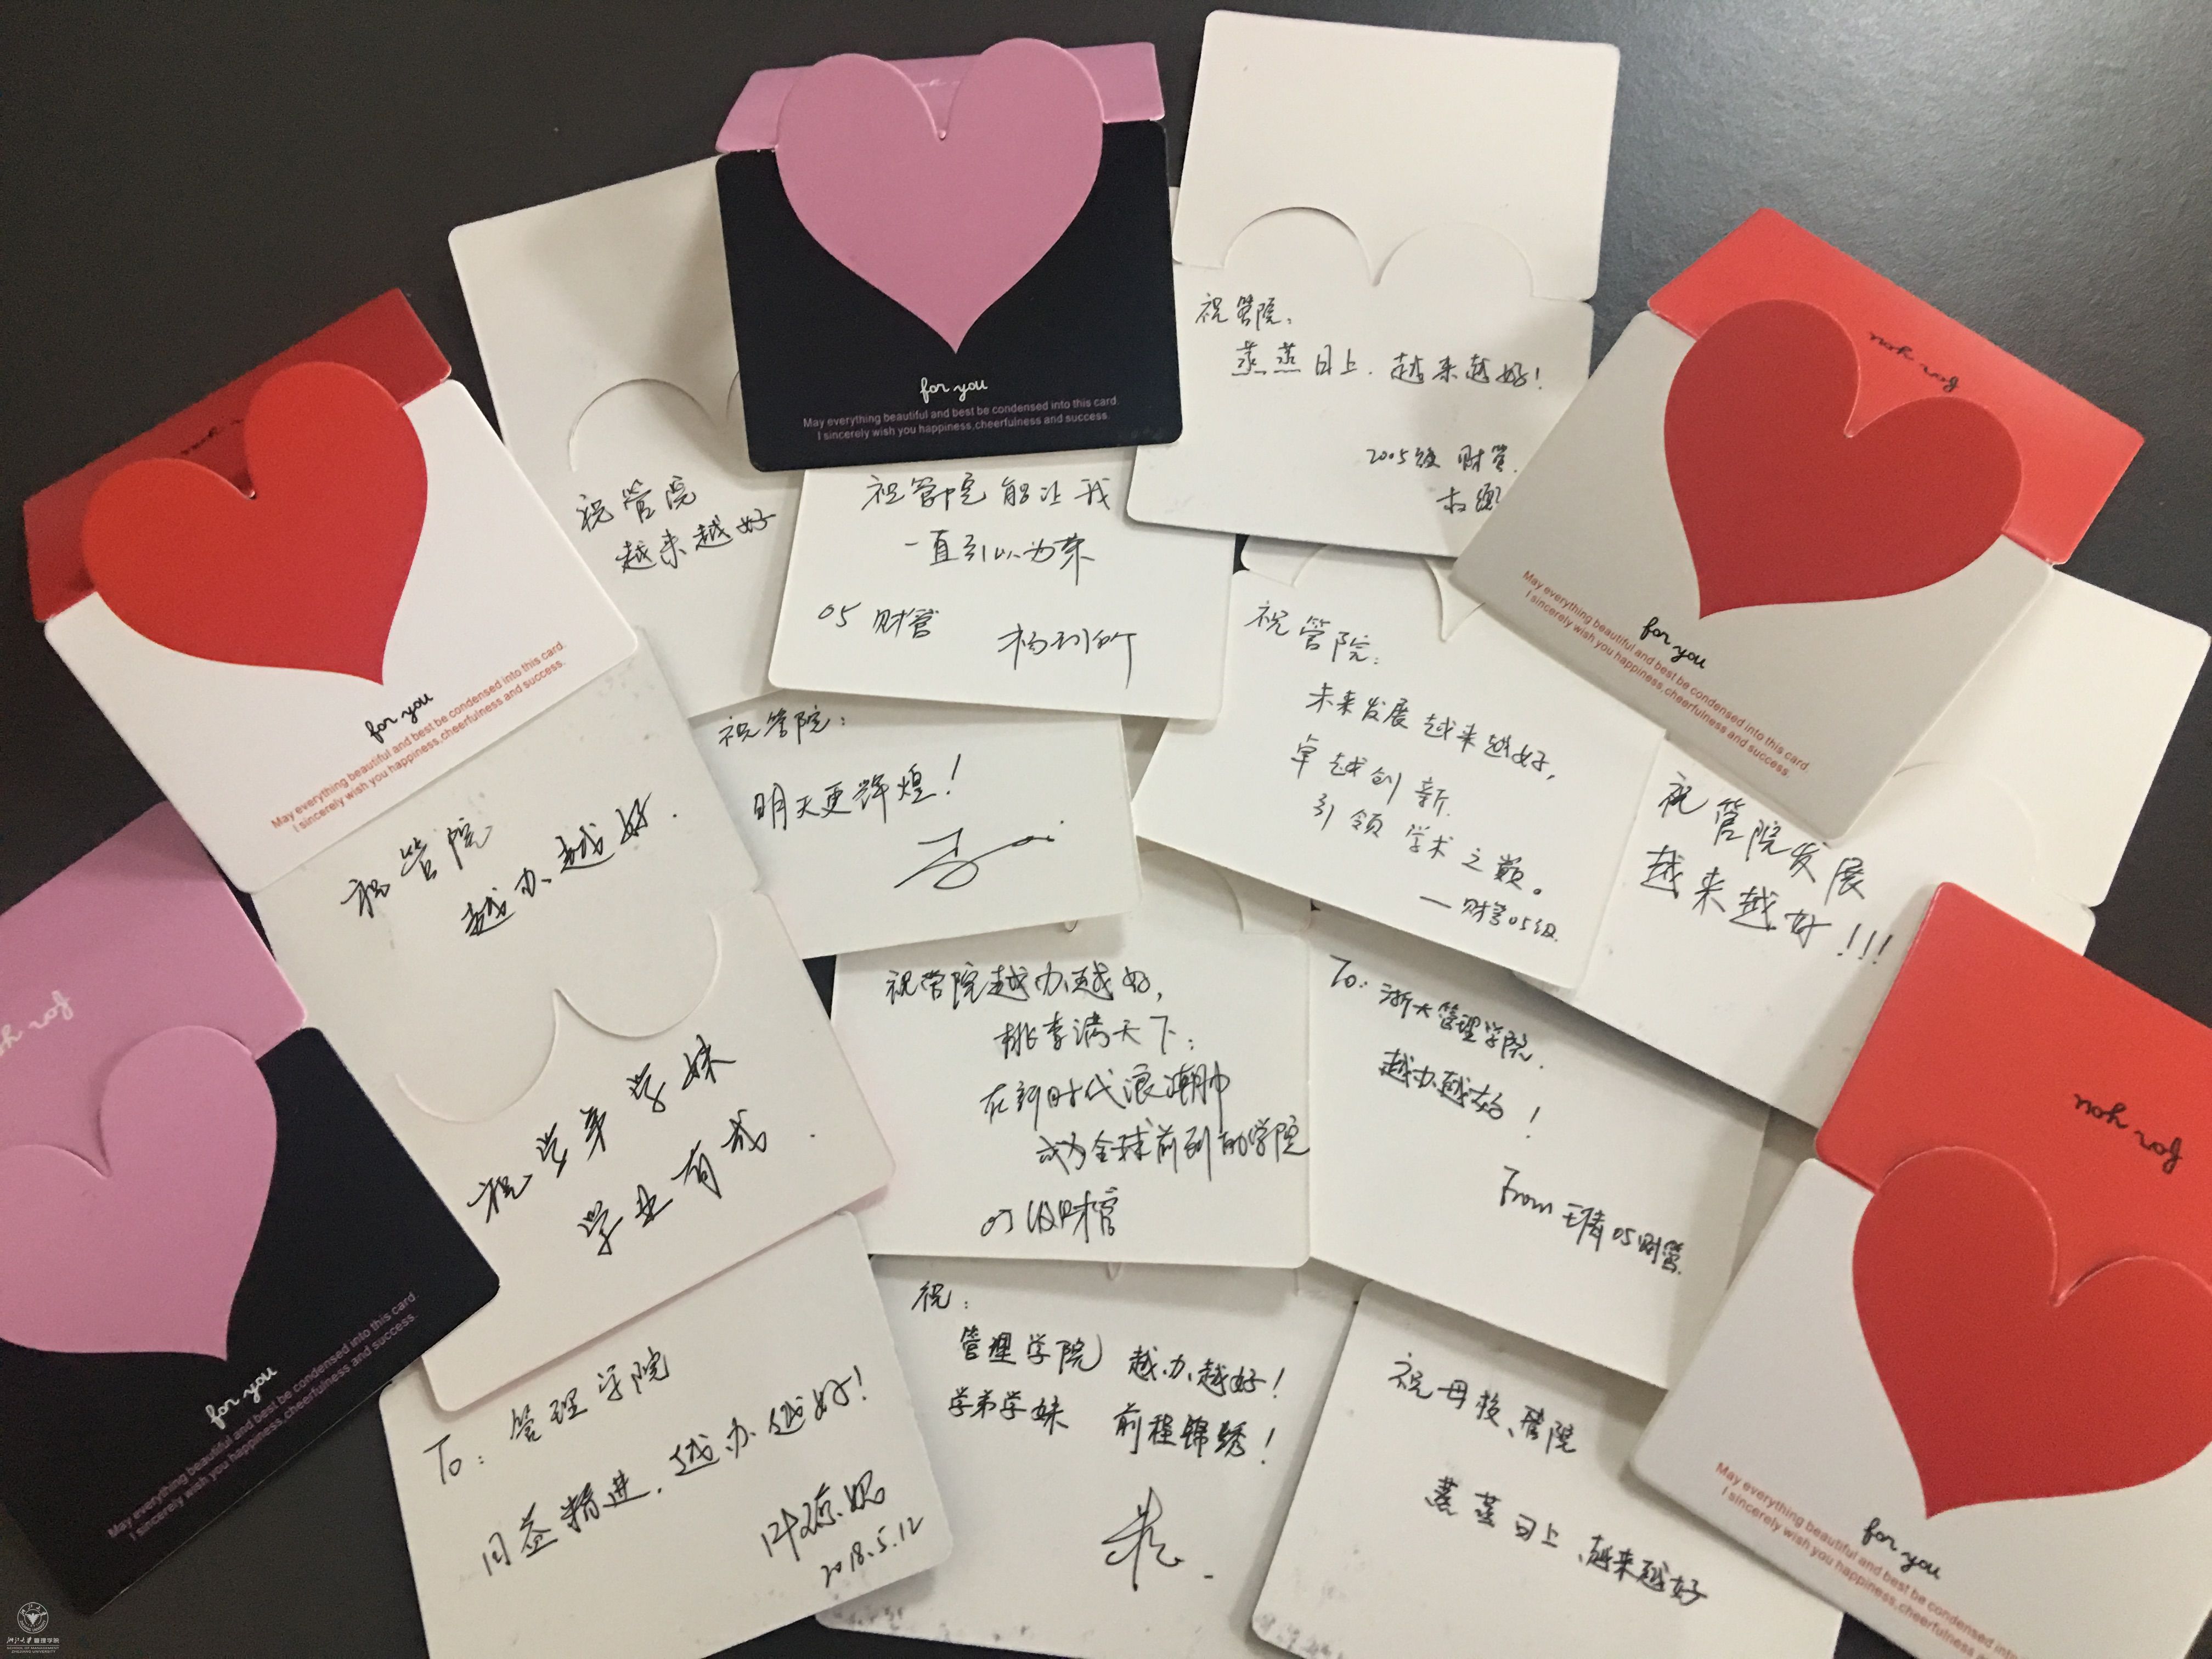 for you
May everything beautiful and best be condensed into this card.
I sincerely wish you happiness,cheerfulness and success
祝管院:
蒸蒸日上.越来越好!
2005级 财管.
for you
for you
May everything beautiful and best be condensed into this card.
I sincerely wish you happiness,cheerfulness and success.
祝管院
越来越好
祝管院能让我
一直引以为荣
05 财管
祝管院:
未来发展越来越好,
卓越创新.
引领学术之巅。
—财管05级.
for you
May everything beautiful and best be condensed into this card.
I sincerely wish you happiness,cheerfulness and success.
祝管院:
明天更辉煌!
祝管院发展
越来越好!!!
祝管院
越办越好.
祝学弟学妹
学业有成.
祝管院越办越好,
桃李满天下;
在新时代浪潮中
成为全球前列的学院
05级财管
To: 浙大管理学院.
越办越好!
From 王倩 05财管.
for you
for you
May everything beautiful and best be condensed into this card.
I sincerely wish you happiness,cheerfulness and success.
To: 管理学院
日益精进.越办越好!
叶琼妮
2018.5.12
祝:
管理学院 越办越好!
学弟学妹 前程锦绣!
祝母校、管院
蒸蒸日上、越来越好
for you
for you
May everything beautiful and best be condensed into
I sincerely wish you happiness,cheerfulness and
浙江大学管理学院
SCHOOL OF MANAGEMENT
ZHEJIANG UNIVERSITY